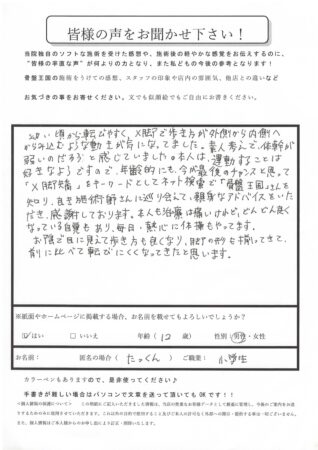 皆様の声をお聞かせ下さい！
当院独自のソフトな施術を受けた感想や、施術後の軽やかな感覚をお伝えするのに、
“皆様の率直な声”が何よりの力となり、また私どもの今後の参考となります！
骨盤王国の施術をうけての感想、スタッフの印象や店内の雰囲気、他店との違いなど
お気づきの事をお寄せください。文でも似顔絵でもご自由にお書きください。
幼い頃から転びやすく、X脚で歩き方が外側から内側へ
から込むような動きが気になってました。素人考えで、体幹が
弱いのだろうと感じていました。本人は、運動することは
好きなようですので、年齢的にも、今が最後のチャンスと思って
「X脚矯正」をキーワードとしてネット検索で「骨盤王国」さんを
知り、良き施術師さんに巡り会えて、親身なアドバイスをいた
だき、感謝しております。本人も治療は痛いけれど、どんどん良く
なっている自覚もあり、毎日、熱心に体操もやってます。
お陰で目に見えて歩き方も良くなり、両脚の形も揃ってきて、
前に比べて転びにくくなってきたと思います。
※紙面やホームページに掲載する場合、お名前を載せてもよろしいでしょうか？
はい いいえ 年齢（12 歳） 性別 男性・女性
お名前： 匿名の場合（たっくん） ご職業：小学生
カラーペンもありますので、是非使ってください♪
手書きが難しい場合はパソコンで文章を送って頂いても OK です！！